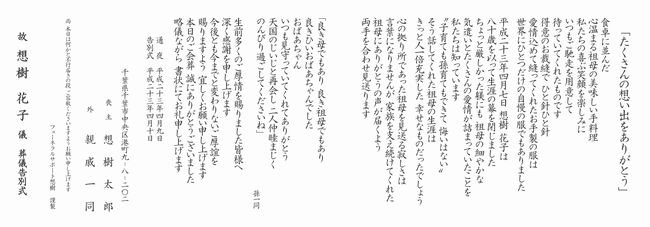 「たくさんの想い出をありがとう」
食卓に並んだ
心温まる祖母の美味しい手料理
私たちの喜ぶ笑顔を楽しみに
いつもご馳走を用意して
待っていてくれたものです
得意のお裁縫で ひと針ひと針
愛情込めて縫ってくれたお手製の服は
世界にひとつだけの自慢の服でもありました
平成二十三年四月七日 想樹 花子は
八十歳を以って生涯の幕を閉じました
ちょっと厳しかった躾にも 祖母の細やかな
気遣いとたくさんの愛情が詰まっていたことを
私たちは知っています
〝子育ても孫育てもできて 悔いはない〟
そう話してくれた祖母の生涯は
きっと人一倍充実した 幸せなものだったでしょう
心の拠り所であった祖母を見送る寂しさは
言葉になりませんが 家族を支え続けてくれた
祖母にありがとうの声が届くよう
両手を合わせ見送ります
「良き母でもあり 良き祖母でもあり
良きひいおばあちゃんでした
おばあちゃん
いつも見守っていてくれてありがとう
天国のじいじと再会し 二人仲睦まじく
のんびり過ごしてくださいね」
孫一同
生前多くのご厚情を賜りました皆様へ
深く感謝を申し上げます
今後とも今までと変わりないご厚誼を
賜りますよう 宜しくお願い申し上げます
本日のご会葬 誠にありがとうございました
略儀ながら 書状にてお礼申し上げます
通夜 平成二十三年四月九日
告別式 平成二十三年四月十日
千葉県千葉市中央区港町九-八-二〇二
喪主 想樹 太郎
外 親戚一同
尚 本日は何かと不行届きの段 ご容赦くださいますようお願い申し上げます
フューネラルサポート想樹 謹製
故 想樹 花子 儀 葬儀告別式